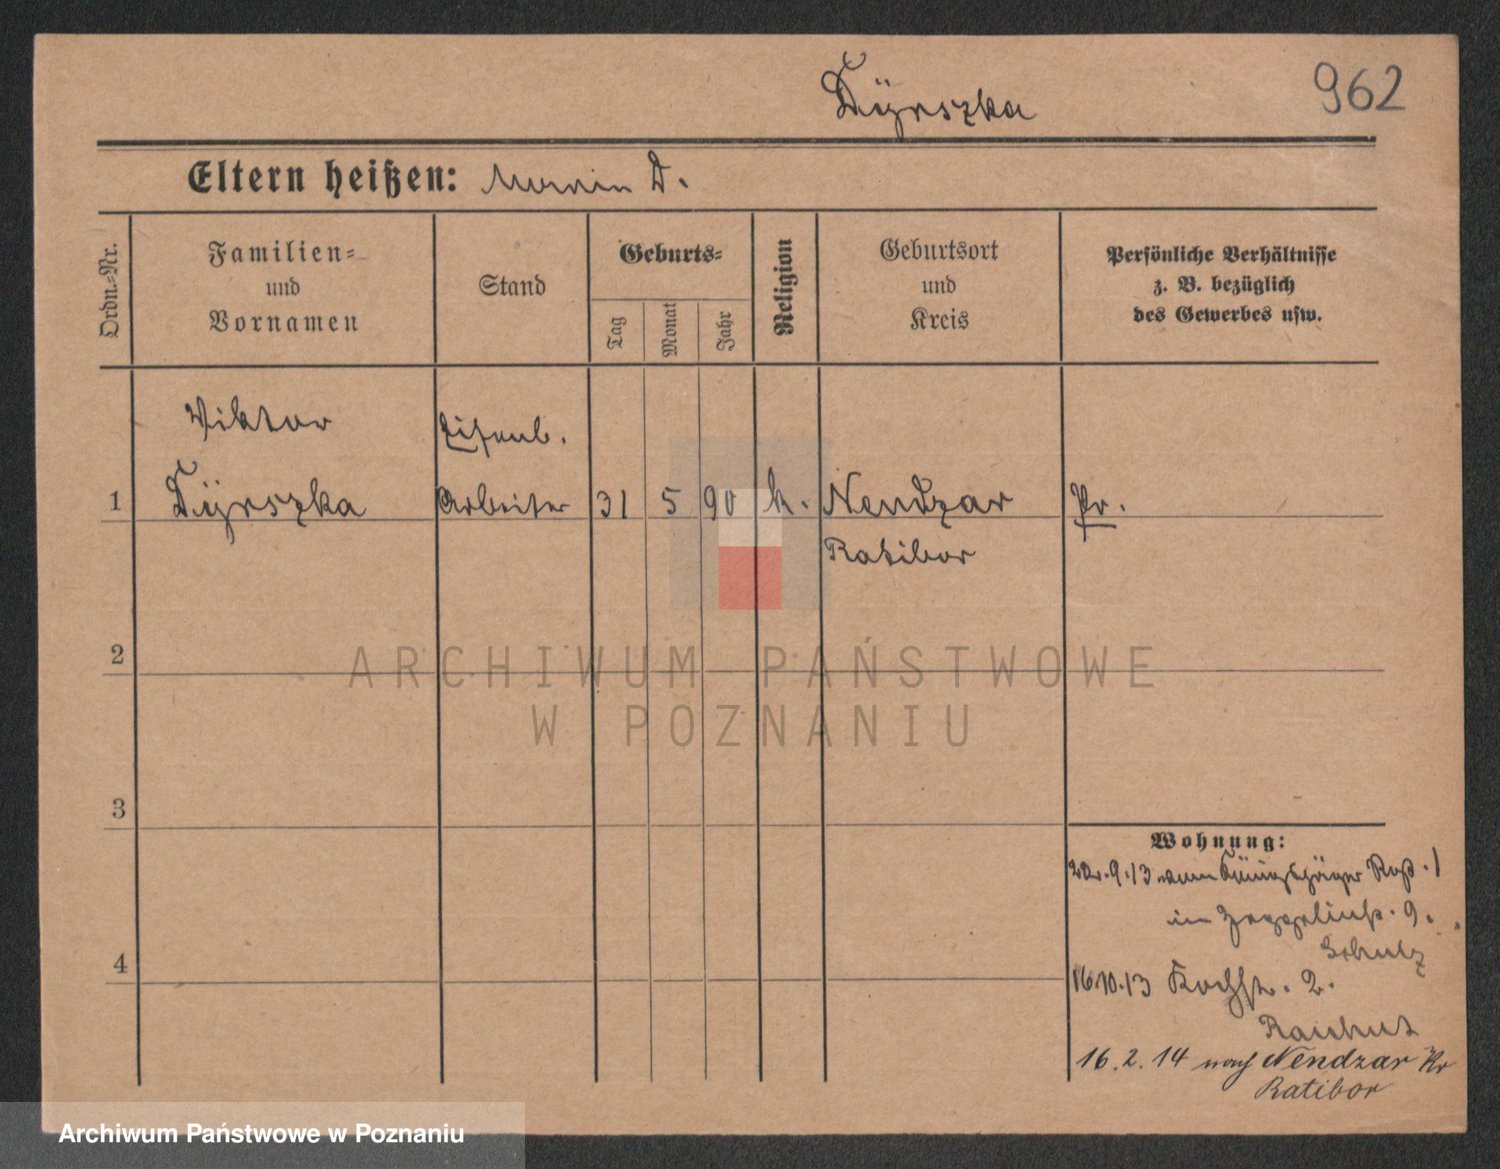 Dÿrszka
962
Eltern heißen: D.
Ordn.-Nr.
Familien-
und
Vornamen
Stand
Geburts-
Tag
Monat
Jahr
Religion
Geburtsort
und
Kreis
Persönliche Verhältnisse
z. B. bezüglich
des Gewerbes usw.
Viktor
Eisenb.
1 Dÿrszka Arbeiter 31 5 90 k. Nendzar Pr.
Ratibor
2
ARCHIWUM PAŃSTWOWE
W POZNANIU
3
Wohnung:
9.13 Königsjäger 1
in Zeppelinstr. 9.
Schulz
4
16.10.13 Kochstr. 2.
16.2.14 nach Nendzar Kr
Ratibor
Archiwum Państwowe w Poznaniu